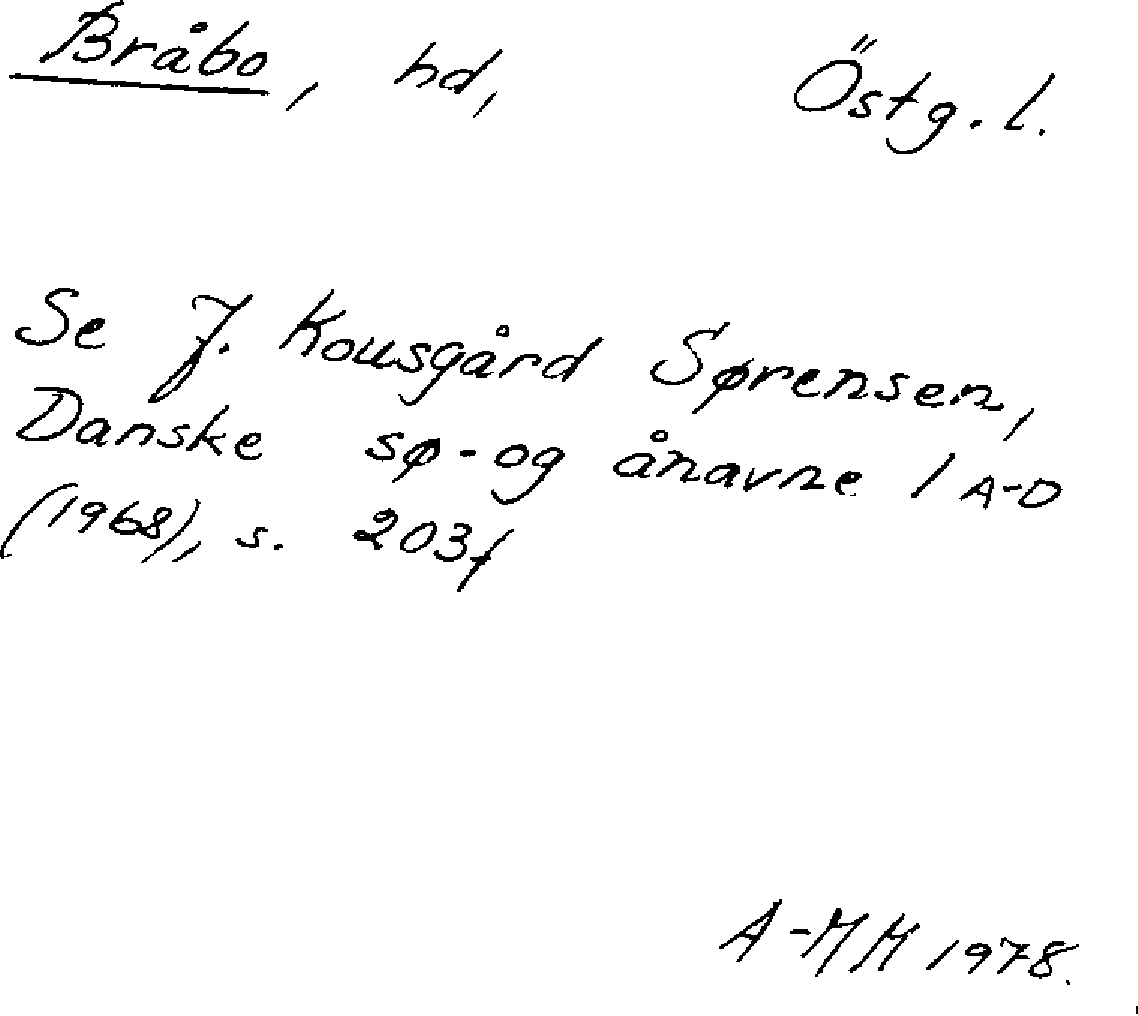 Bråbo, hd, Östg. l.
Se J. Kousgård Sørensen,
Danske sø- og ånavne 1 A-D
(1968), s. 203f
A-MM 1978.